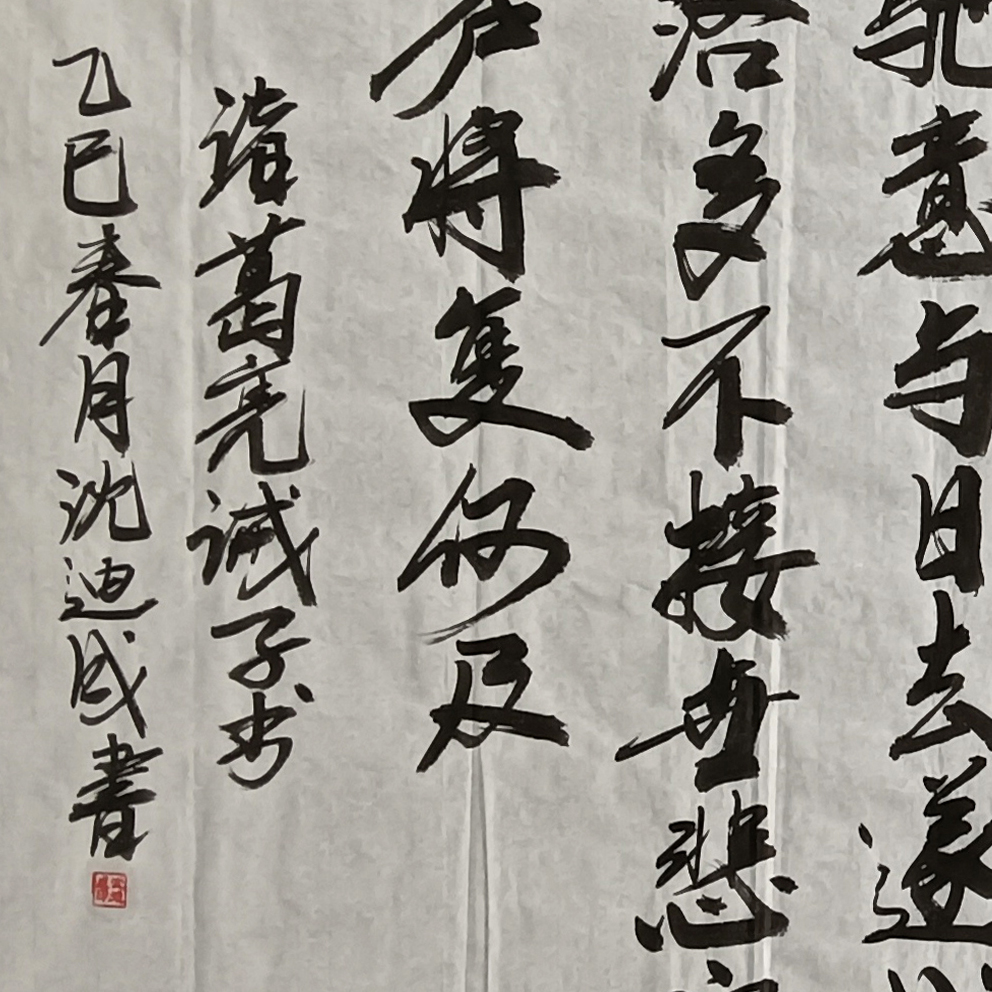 驰意与日去遂
落多不接世悲守
庐将复何及
诸葛亮诫子书
乙巳春月沈迪成書